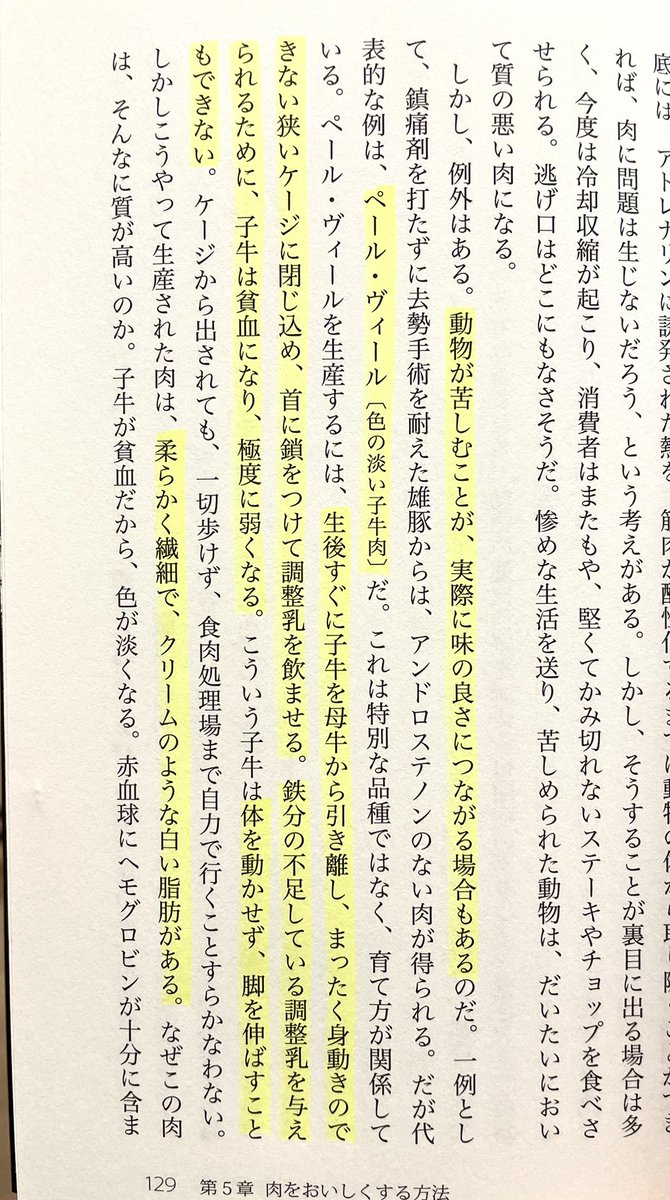 れば、肉に問題は生じないだろう、という考えがある。しかし、そうすることが裏目に出る場合は多
く、今度は冷却収縮が起こり、消費者はまたもや、堅くてかみ切れないステーキやチョップを食べさ
せられる。逃げ口はどこにもなさそうだ。惨めな生活を送り、苦しめられた動物は、だいたいにおい
て質の悪い肉になる。
しかし、例外はある。動物が苦しむことが、実際に味の良さにつながる場合もあるのだ。一例とし
て、鎮痛剤を打たずに去勢手術を耐えた雄豚からは、アンドロステノンのない肉が得られる。だが代
表的な例は、ペール・ヴィール〔色の淡い子牛肉〕だ。これは特別な品種ではなく、育て方が関係して
いる。ペール・ヴィールを生産するには、生後すぐに子牛を母牛から引き離し、まったく身動きので
きない狭いケージに閉じ込め、首に鎖をつけて調整乳を飲ませる。鉄分の不足している調整乳を与え
られるために、子牛は貧血になり、極度に弱くなる。こういう子牛は体を動かせず、脚を伸ばすこと
もできない。ケージから出されても、一切歩けず、食肉処理場まで自力で行くことすらかなわない。
しかしこうやって生産された肉は、柔らかく繊細で、クリームのような白い脂肪がある。なぜこの肉
は、そんなに質が高いのか。子牛が貧血だから、色が淡くなる。赤血球にヘモグロビンが十分に含ま
129 第5章 肉をおいしくする方法